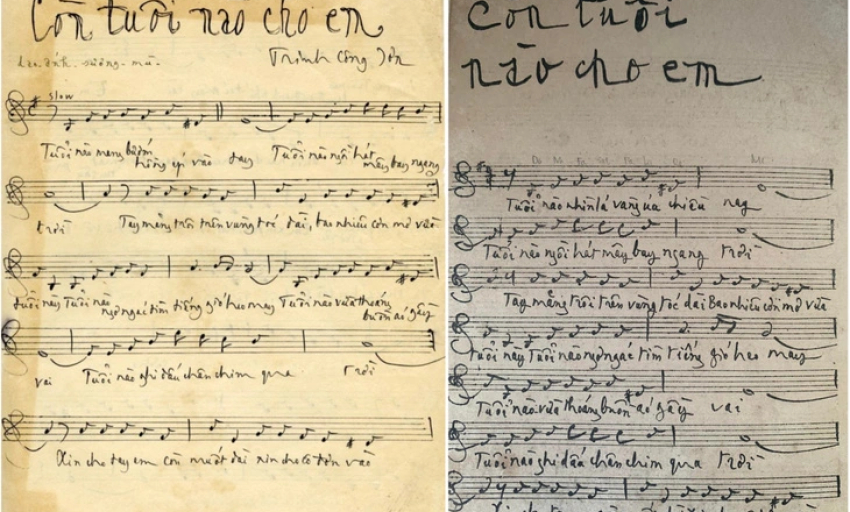 Còn tuổi nào cho em
Trịnh Công Sơn
slow
Tuổi nào mang bướm
hồng ép vào đây Tuổi nào ngồi hát
mây bay ngang
trời Tay măng trôi trên vùng tóc dài, bao nhiêu cơn mơ vừa
tuổi này Tuổi nào
ngơ ngác tìm tiếng gió heo may Tuổi nào vừa thoáng
buồn áo gầy
vai Tuổi nào ghi dấu chân chim qua trời
Xin cho tay em còn muốt dài xin cho cô đơn vào
Còn tuổi
nào cho em
Tuổi nào nhìn lá vàng úa chiều nay
Tuổi nào ngồi hát mây bay ngang trời
Tay măng trôi trên vùng tóc dài Bao nhiêu cơn mơ vừa
tuổi này Tuổi nào ngơ ngác tìm tiếng gió heo may
Tuổi nào vừa thoáng buồn áo gầy vai
Tuổi nào ghi dấu chân chim qua trời